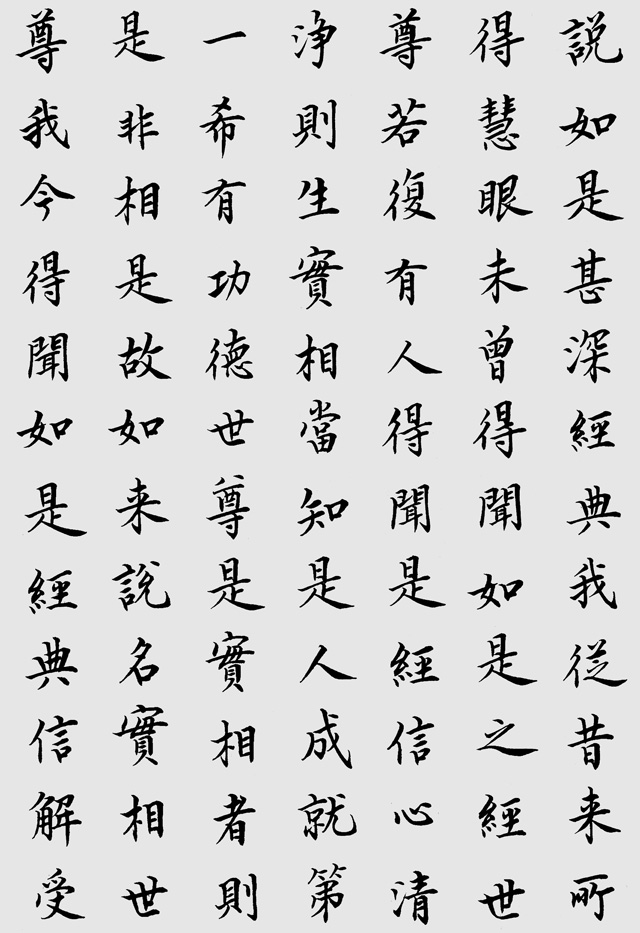 説如是甚深經典我從昔来所
得慧眼未曾得聞如是之經世
尊若復有人得聞是經信心清
浄則生實相當知是人成就第
一希有功德世尊是實相者則
是非相是故如来說名實相世
尊我今得聞如是經典信解受